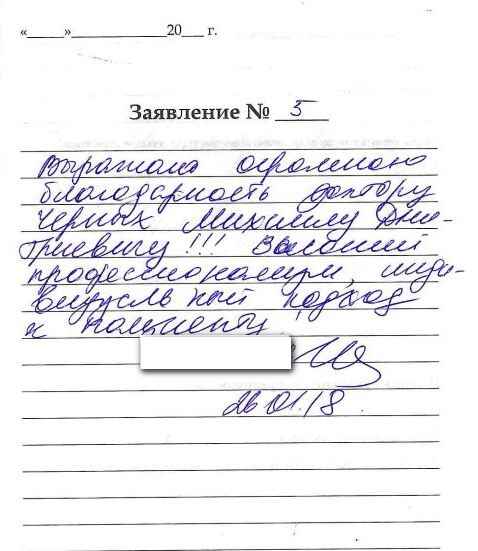 «_____»_____________20___ г.
Заявление № 5
Выражаю огромною
благодарность доктору
Черных Михаилу Дми-
триевичу!!! Высокий
профессионализм, инди-
видуальный подход
к пациенту
26.01.18.